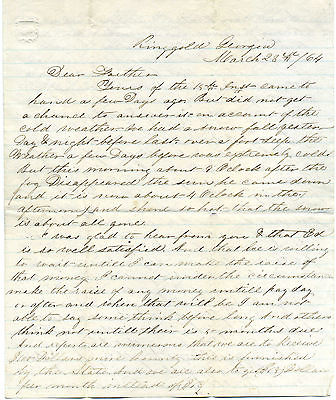 Ringgold Georgia
March 23rd/64
Dear Brother
Yours of the 13th Inst came to
hand a few Days ago. But did not get
a chance to answer it on account of the
cold weather. We had a snow fall yester
Day & night before last over a foot deep the
Weather a few Days before was extremely cold.
But this morning about 9 Oclock after the
fog Disappeared the sun he came down
and it is now about 4 Oclock in the
afternoon and so hot that the snow
is about all gone
I was glad to hear from you & that Ed
is so well satisfied. And that he is willing
to wait untill I can make the raise of
that money. I cannot under the circumstan
make the raise of any money untill pay day
or after and when that will be I am not
able to say some think before long And others
think not untill their is 4 months due
And reports are numerous that we are to Receive
more bounty this is furnished
by the State. And we are also to get Dollars
per month instead of